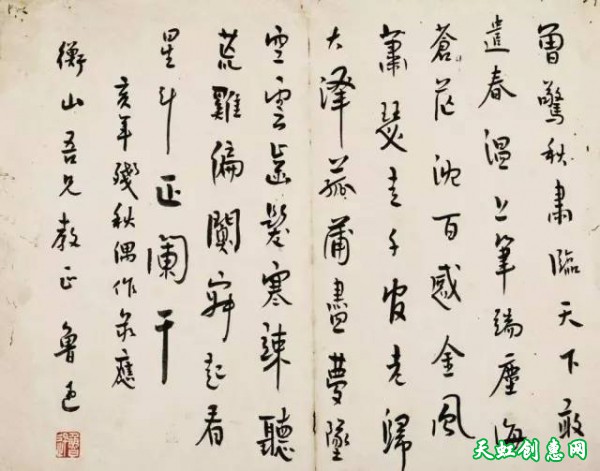 曾驚秋肅臨天下敢
遣春溫上筆端塵海
蒼茫沈百感金風
蕭瑟走千官老歸
大澤菰蒲盡夢墜
空雲齒髮寒竦聽
荒雞偏闃寂起看
星斗正闌干
亥年殘秋偶作錄應
衡山吾兄教正 魯迅
天虹创惠网